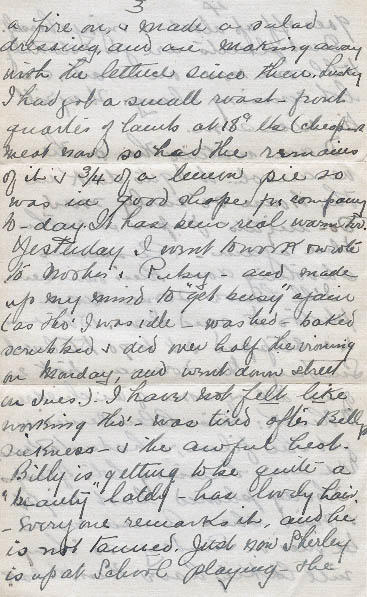 3
a fire on, & made a salad
dressing, and are making away
with the lettuce since then. Lucky
I had got a small roast - front
quarter of lamb at 18¢ lb (cheap
meat now) so had the remains
of it & 3/4 of a lemon pie so
was in good shape for company
to-day. It has been real warm too.
Yesterday I went to work & wrote
to & - and made
up my mind to "get busy" again
(as tho' I was idle - washed - baked
scrubbed & did over half the ironing
on Monday, and went down street
on Tues.). I have not felt like
working tho' - was tired after Billy's
sickness - & the awful heat.
Billy is getting to be quite a
"beauty" lately - has lovely hair.
- everyone remarks it, and he
is not tanned. Just now Shirley
is up at School playing - the